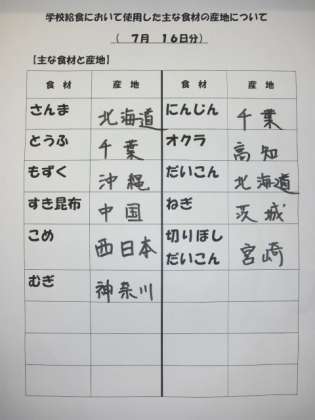 学校給食において使用した主な食材の産地について
（　７月　１６日分）
【主な食材と産地】
食　材　産　地　食　材　産　地
さんま　北海道　にんじん　千葉
とうふ　千葉　オクラ　高知
もずく　沖縄　だいこん　北海道
すき昆布　中国　ねぎ　茨城
こめ　西日本　切りぼしだいこん　宮崎
むぎ　神奈川